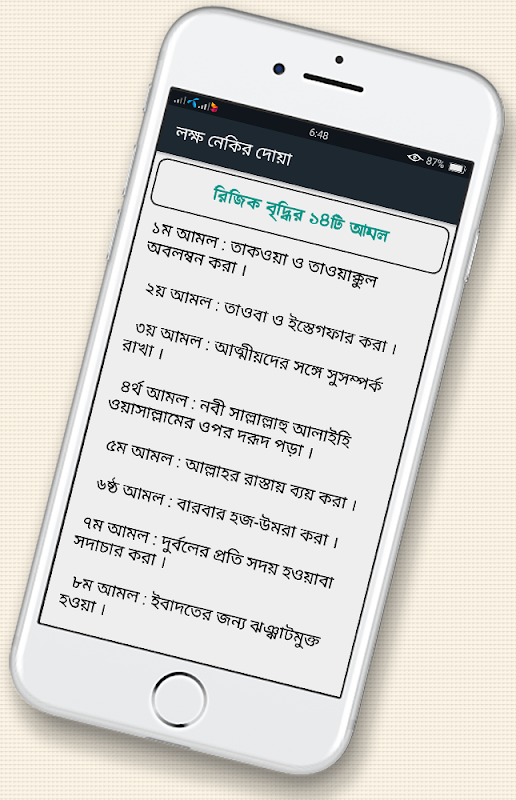 6:48
87%
লক্ষ নেকির দোয়া
রিজিক বৃদ্ধির ১৪টি আমল
১ম আমল : তাকওয়া ও তাওয়াক্কুল
অবলম্বন করা ।
২য় আমল : তাওবা ও ইস্তেগফার করা ।
৩য় আমল : আত্মীয়দের সঙ্গে সুসম্পর্ক
রাখা ।
৪র্থ আমল : নবী সাল্লাল্লাহু আলাইহি
ওয়াসাল্লামের ওপর দরূদ পড়া ।
৫ম আমল : আল্লাহর রাস্তায় ব্যয় করা ।
৬ষ্ঠ আমল : বারবার হজ-উমরা করা ।
৭ম আমল : দুর্বলের প্রতি সদয় হওয়াবা
সদাচার করা ।
৮ম আমল : ইবাদতের জন্য ঝঞ্ঝাটমুক্ত
হওয়া ।